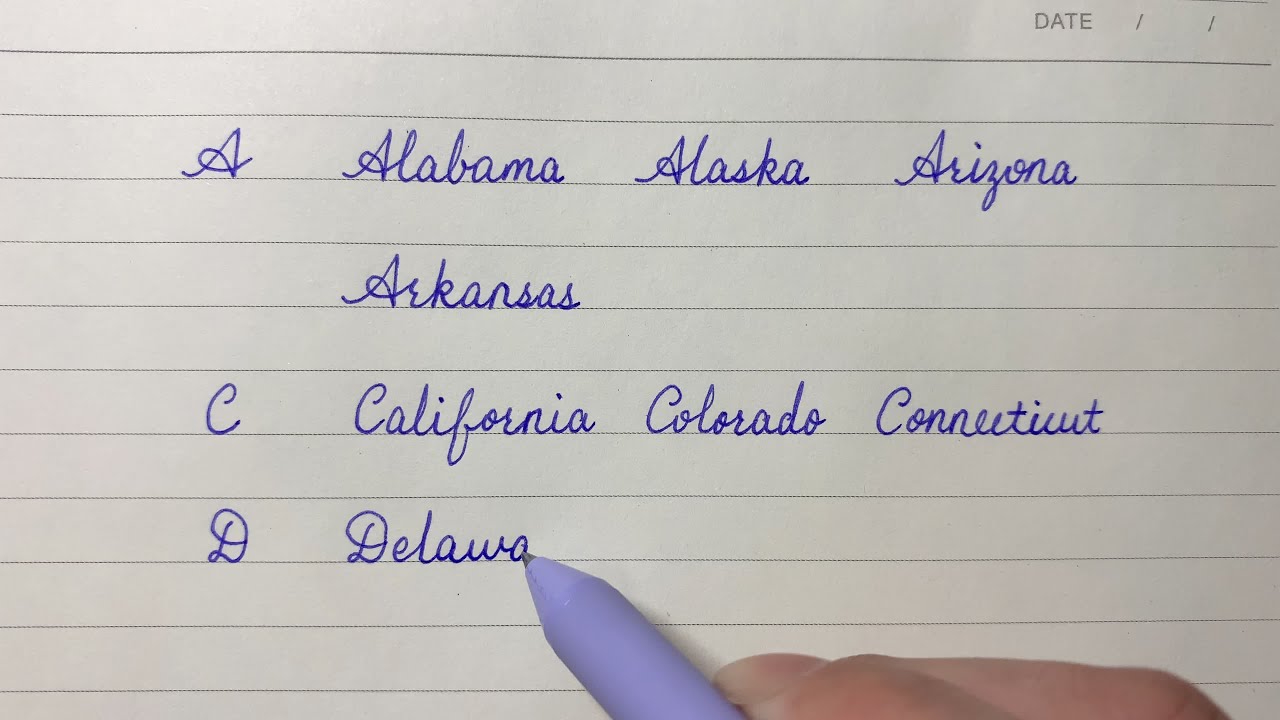 DATE / /
A Alabama Alaska Arizona
Arkansas
C California Colorado Connecticut
D Delawa